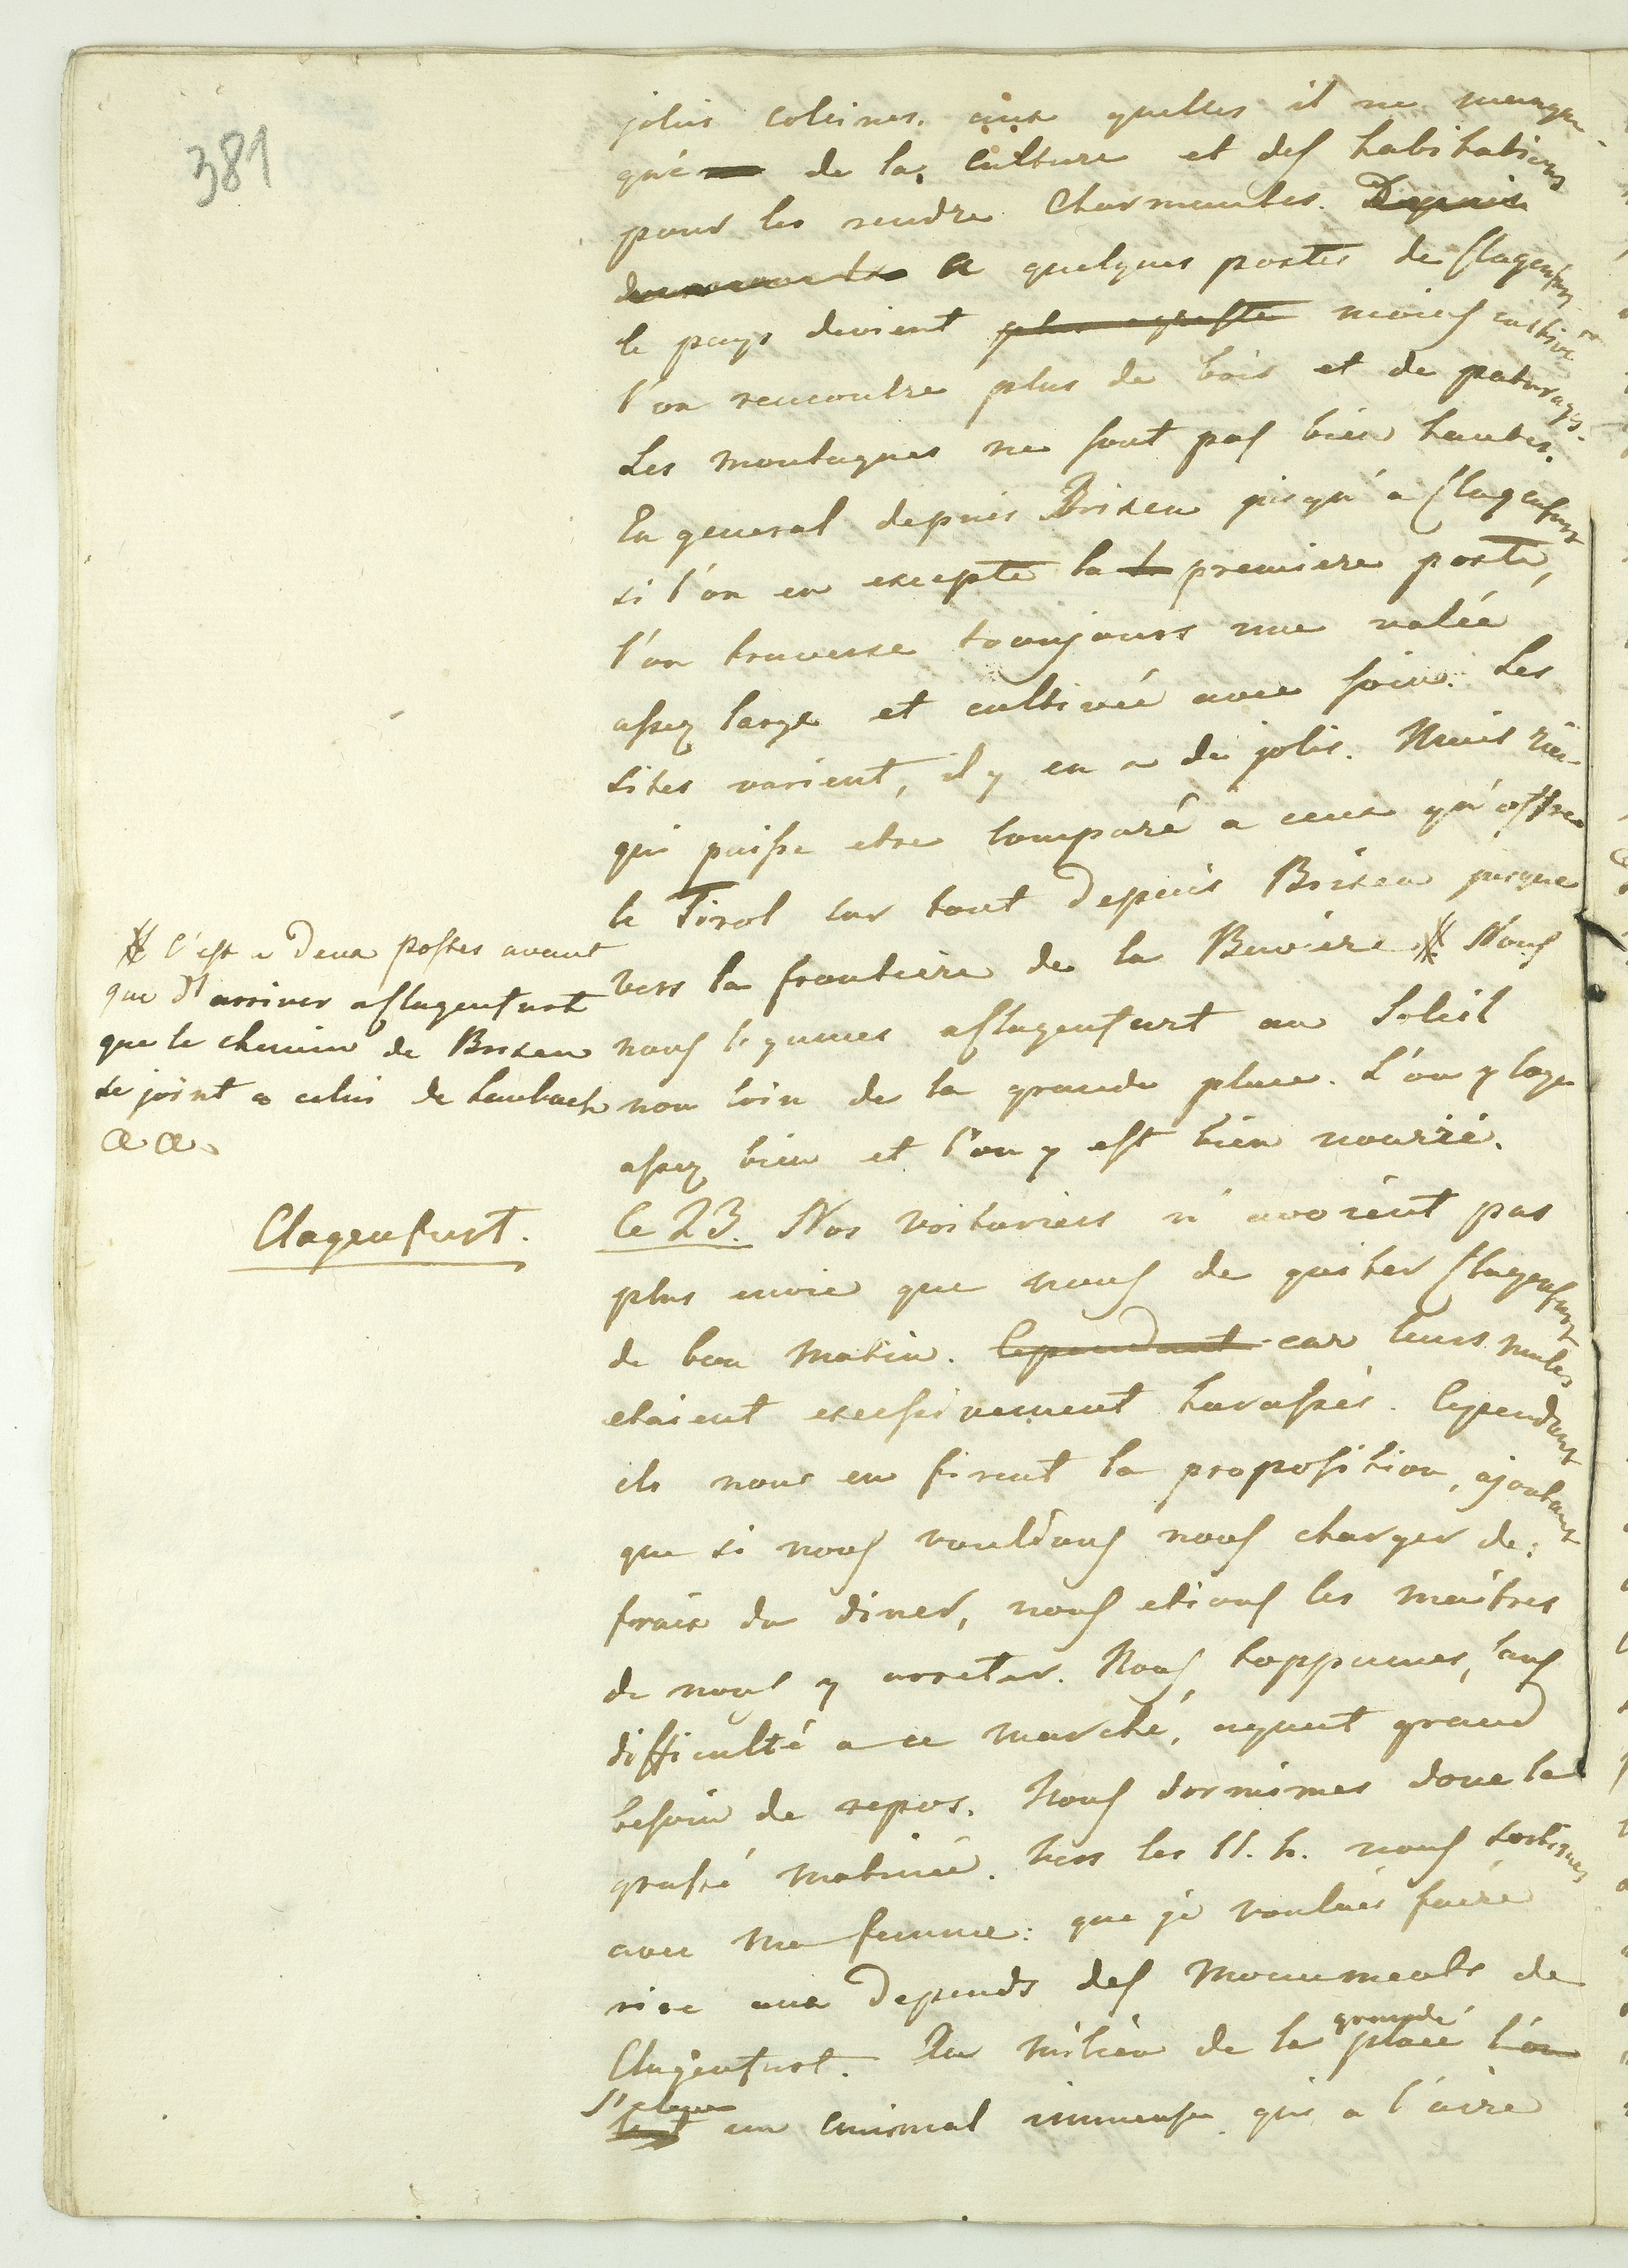 381
jolies colines. aux quelles il ne manque
qu'e de la culture et des habitations
pour les rendre Charmantes. Depuis
A quelques postes de Clagenfurt
le pays devient plus agreste moins cultivé
l'on rencontre plus de bois et de paturages.
Les montagnes ne sont pas bien hautes.
En general depuis Brixen jusqu'a Clagenfurt
si l'on en excepte la la premiere poste,
l'on traverse toujours une valée
assez large et cultivée avec soin. Les
sites varient, il y en a de jolis. Mais rien
qui puisse etre comparé a ceux qu'offre
le Tirol sur tout depuis Brixen jusque
vers la frontiere de la Baviere # Nous
# C'est a deux postes avant
que d'arriver a Clagenfurt
que le chemin de Brixen
se joint a celui de Laubach
a a.
nous logames a Clagenfurt au Soleil
non loin de la grande place. L'on y loge
assez bien et l'on y est bien nourri.
Clagenfurt.
le 23. Nos voituriers n'avoient pas
plus envie que nous de quiter Clagenfurt
de bon matin. Cependant car leurs mules
etaient excessivement harassés. Cependant
ils nous en firent la proposition, ajoutant
que si nous voulions nous charger des
frais du diner, nous etions les maitres
de nous y arreter. Nous toppames, sans
difficulté a ce marché, ayant grand
besoin de repos. Nous dormimes donc la
grasse matinée. Vers les 11. h. nous sortimes
avec ma femme: que je voulais faire
rire aux depends des Monuments de
Clagenfurt. Au milieu de la grande place l'on
s'eleve un animal immense qui a l'aire